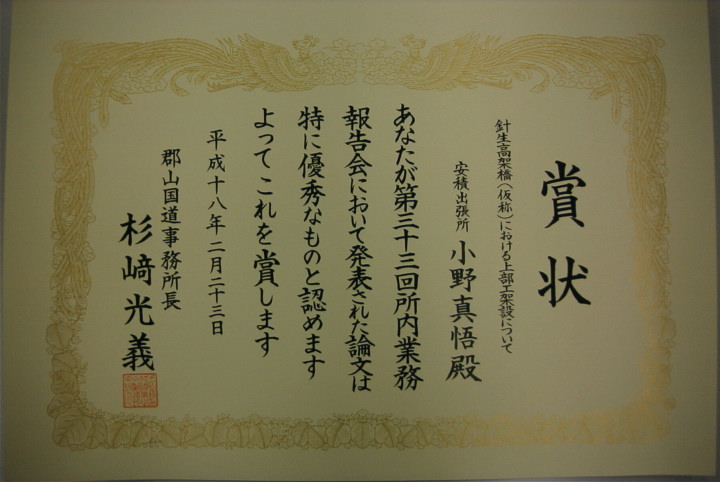 賞状
針生高架橋(仮称)における上部工架設について
安積出張所 小野真悟殿
あなたが第三十三回所内業務
報告会において発表された論文は
特に優秀なものと認めます
よってこれを賞します
平成十八年二月二十三日
郡山国道事務所長
杉﨑光義